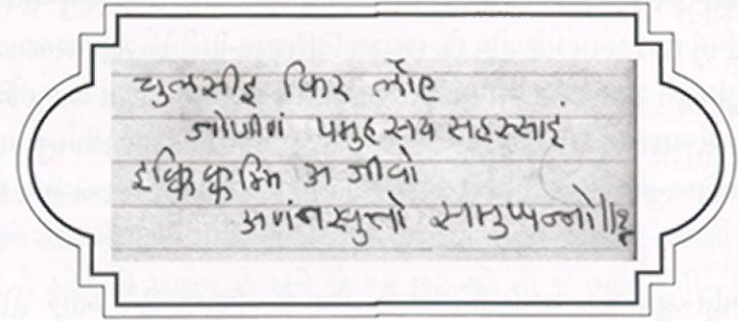 चुलसीइ किर लोए
जोणीणं पमुहसयसहस्साइं
इक्किक्कम्मि अ जीवो
अणंतखुत्तो समुप्पन्नो॥